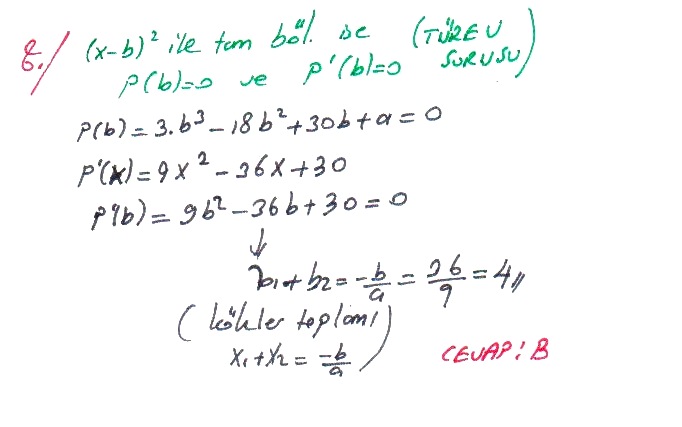 Ç./ (x-b)² ile tam böl. ise (TÜREV SORUSU)
P(b)=0 ve P'(b)=0
P(b) = 3.b³ - 18b² + 30b + a = 0
P'(x) = 9x² - 36x + 30
P'(b) = 9b² - 36b + 30 = 0
↓
b₁ + b₂ = -b/a = 36/9 = 4//
(kökler toplamı
x₁ + x₂ = -b/a)
CEVAP: B